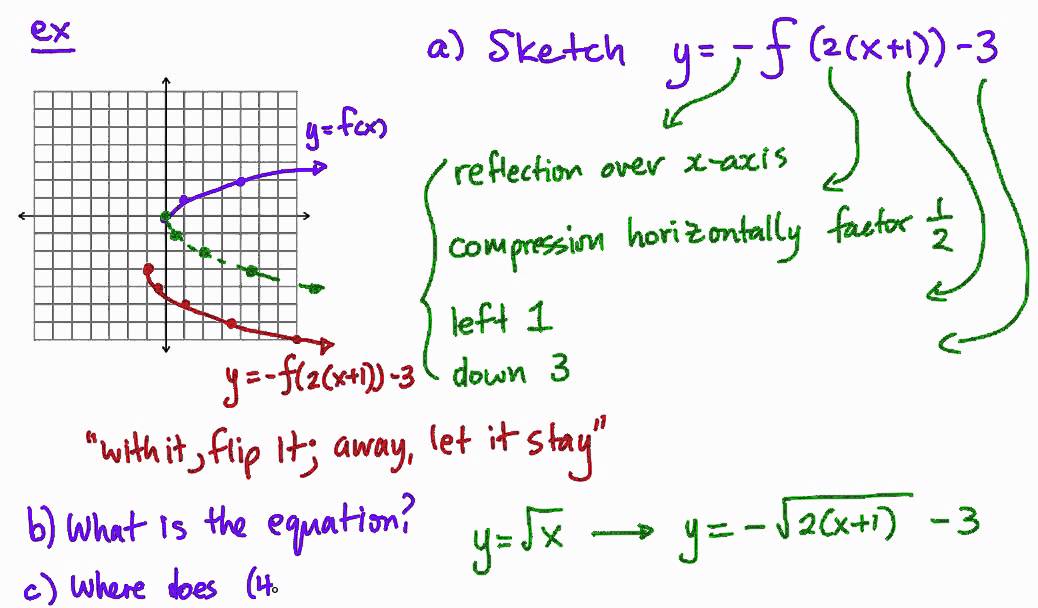 ex
a) Sketch y = - f (2(x+1)) - 3
y = f(x)
reflection over x-axis
compression horizontally factor 1/2
left 1
down 3
y = -f(2(x+1)) - 3
"with it, flip it; away, let it stay"
b) What is the equation? y = √x → y = -√2(x+1) - 3
c) Where does (4